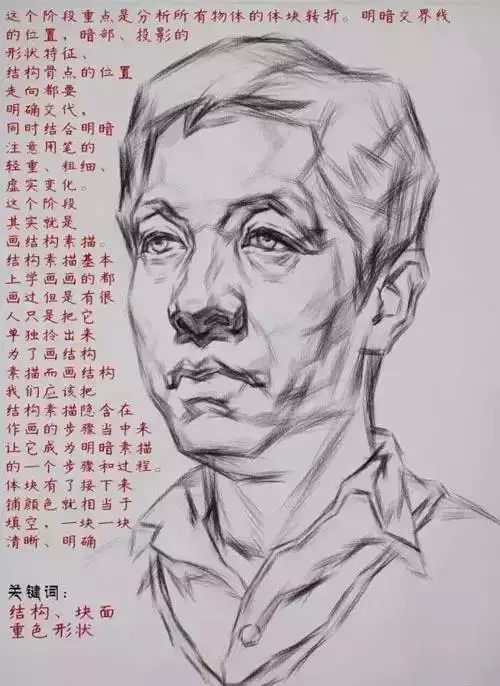 这个阶段重点是分析所有物体的体块转折。明暗交界线
的位置，暗部、投影的
形状特征、
结构骨点的位置
走向都要
明确交代，
同时结合明暗
注意用笔的
轻重、粗细、
虚实变化。
这个阶段
其实就是
画结构素描。
结构素描基本
上学画画的都
画过但是有很
人只是把它
单独拎出来
为了画结构
素描而画结构
我们应该把
结构素描隐含在
作画的步骤当中来
让它成为明暗素描
的一个步骤和过程。
体块有了接下来
铺颜色就相当于
填空，一块一块
清晰、明确
关键词：
结构、块面
重色形状